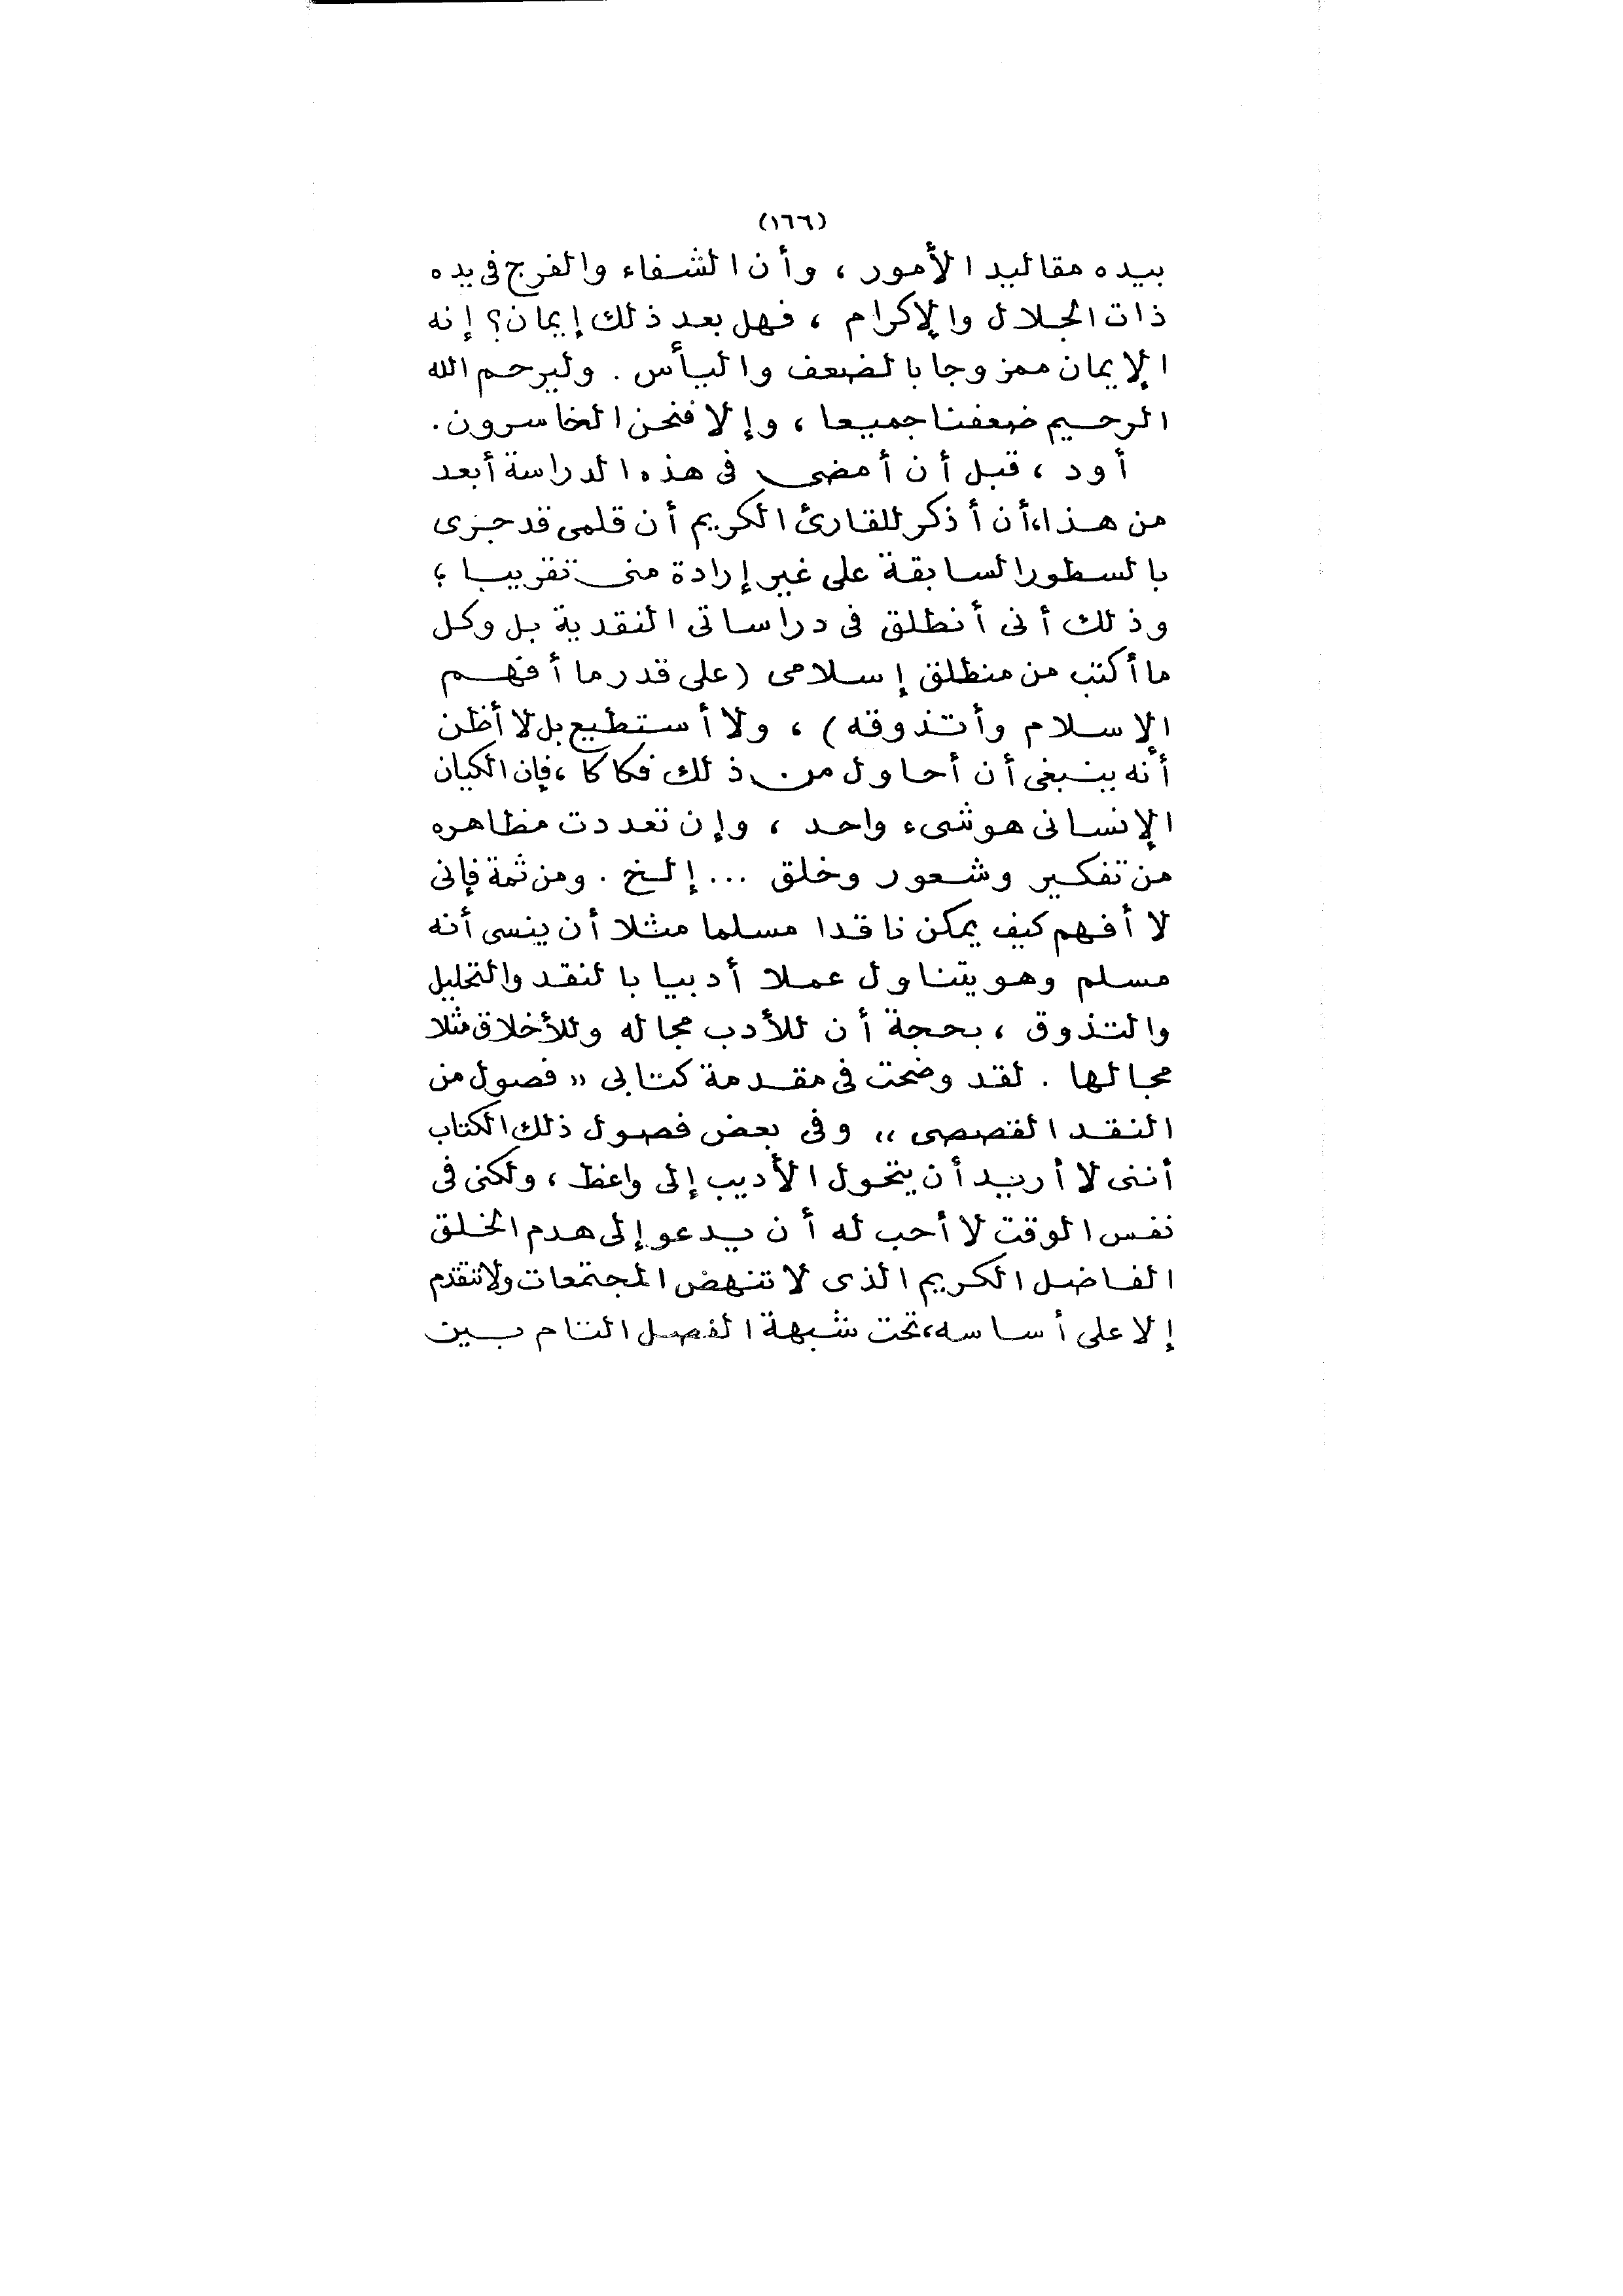 (١٦٦)
بيده مقاليد الأمور ، وأن الشفاء والفرج فى يده
ذات الجلال والإكرام ، فهل بعد ذلك إيمان؟ إنه
الإيمان ممزوجا بالضعف واليأس . وليرحم الله
الرحيم ضعفنا جميعا ، وإلا فنحن الخاسرون .
أود ، قبل أن أمضى فى هذه الدراسة أبعد
من هذا، أن أذكر للقارئ الكريم أن قلمى قد جرى
بالسطور السابقة على غير إرادة منى تقريبا ؛
وذلك أنى أنطلق فى دراساتى النقدية بل وكل
ما أكتب من منطلق إسلامى (على قدر ما أفهم
الإسلام وأتذوقه) ، ولا أستطيع بل لا أظن
أنه ينبغى أن أحاول من ذلك فكاكا ، فإن الكيان
الإنسانى هو شىء واحد ، وإن تعددت مظاهره
من تفكير وشعور وخلق ... إلخ . ومن ثمة فإنى
لا أفهم كيف يمكن ناقدا مسلما مثلا أن ينسى أنه
مسلم وهو يتناول عملا أدبيا بالنقد والتحليل
والتذوق ، بحجة أن للأدب مجاله وللأخلاق مثلا
مجالها . لقد وضحت فى مقدمة كتابى « فصول من
النقد القصصى » وفى بعض فصول ذلك الكتاب
أننى لا أريد أن يتحول الأديب إلى واعظ ، ولكنى فى
نفس الوقت لا أحب له أن يدعو إلى هدم الخلق
الفاضل الكريم الذى لا تنهض المجتمعات ولا تتقدم
إلا على أساسه، تحت شبهة الفصل التام بين